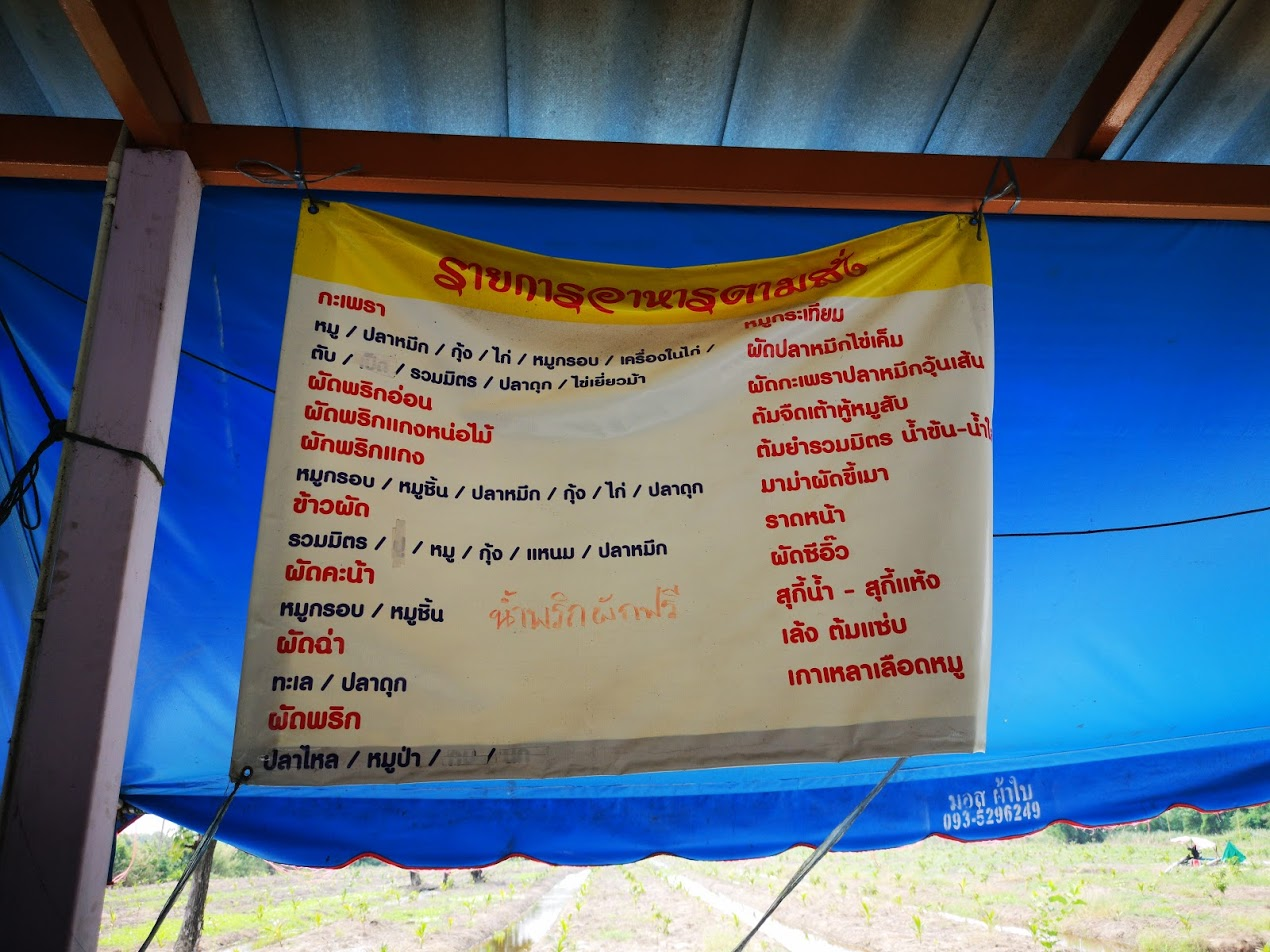 รายการอาหารตามสั่ง
กะเพรา
หมู / ปลาหมึก / กุ้ง / ไก่ / หมูกรอบ / เครื่องในไก่ /
ตับ / / รวมมิตร / ปลาดุก / ไข่เยี่ยวม้า
ผัดพริกอ่อน
ผัดพริกแกงหน่อไม้
ผักพริกแกง
หมูกรอบ / หมูชิ้น / ปลาหมึก / กุ้ง / ไก่ / ปลาดุก
ข้าวผัด
รวมมิตร / / หมู / กุ้ง / แหนม / ปลาหมึก
ผัดคะน้า
หมูกรอบ / หมูชิ้น
ผัดฉ่า
ทะเล / ปลาดุก
ผัดพริก
ปลาไหล / หมูป่า / /
น้ำพริกผักฟรี
หมูกระเทียม
ผัดปลาหมึกไข่เค็ม
ผัดกะเพราปลาหมึกวุ้นเส้น
ต้มจืดเต้าหู้หมูสับ
ต้มยำรวมมิตร น้ำข้น-น้ำใ
มาม่าผัดขี้เมา
ราดหน้า
ผัดซีอิ๊ว
สุกี้น้ำ - สุกี้แห้ง
เล้ง ต้มแซ่บ
เกาเหลาเลือดหมู
มอส ผ้าใบ
093-5296249